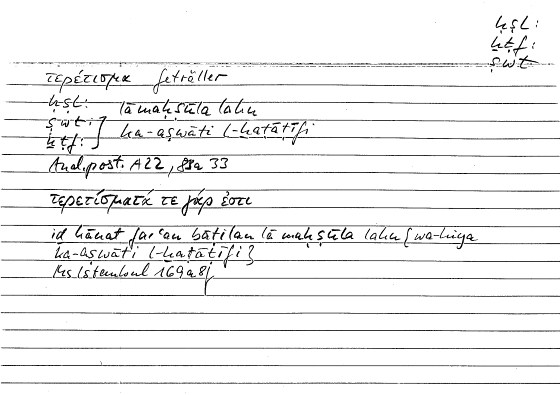 ḥṣl:
ḫṭf:
ṣwt
τερέτισμα Geträller
ḥṣl: lā maḥṣūla lahu
ṣwt: ka-aṣwāti l-ḫaṭāṭīfi
ḫṭf:
Anal. post. A 22, 83a 33
τερετίσματά τε γάρ ἐστι
iḏ kānat farʿan bāṭilan lā maḥṣūla lahu {wa-hiya
ka-aṣwāti l-ḫaṭāṭīfi}
Ms Istanbul 169a8f